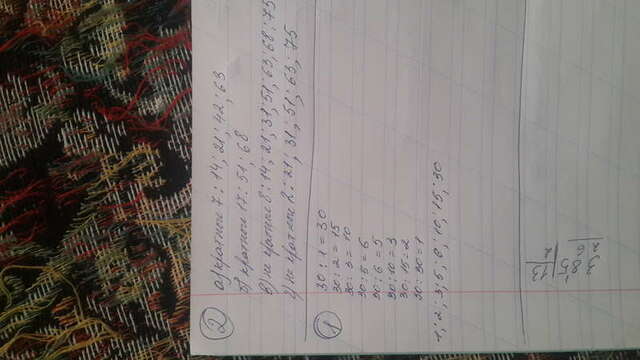 2
а) кратные 7: 14; 21; 42; 63
б) кратные 17: 51; 68
в) не кратные 8: 14; 21; 31; 51; 63; 68; 75
г) не кратные 2: 21; 31; 51; 63; 75
1
30 : 1 = 30
30 : 2 = 15
30 : 3 = 10
30 : 5 = 6
30 : 6 = 5
30 : 10 = 3
30 : 15 = 2
30 : 30 = 1
1; 2; 3; 5; 6; 10; 15; 30
385 | 13
26 | 2